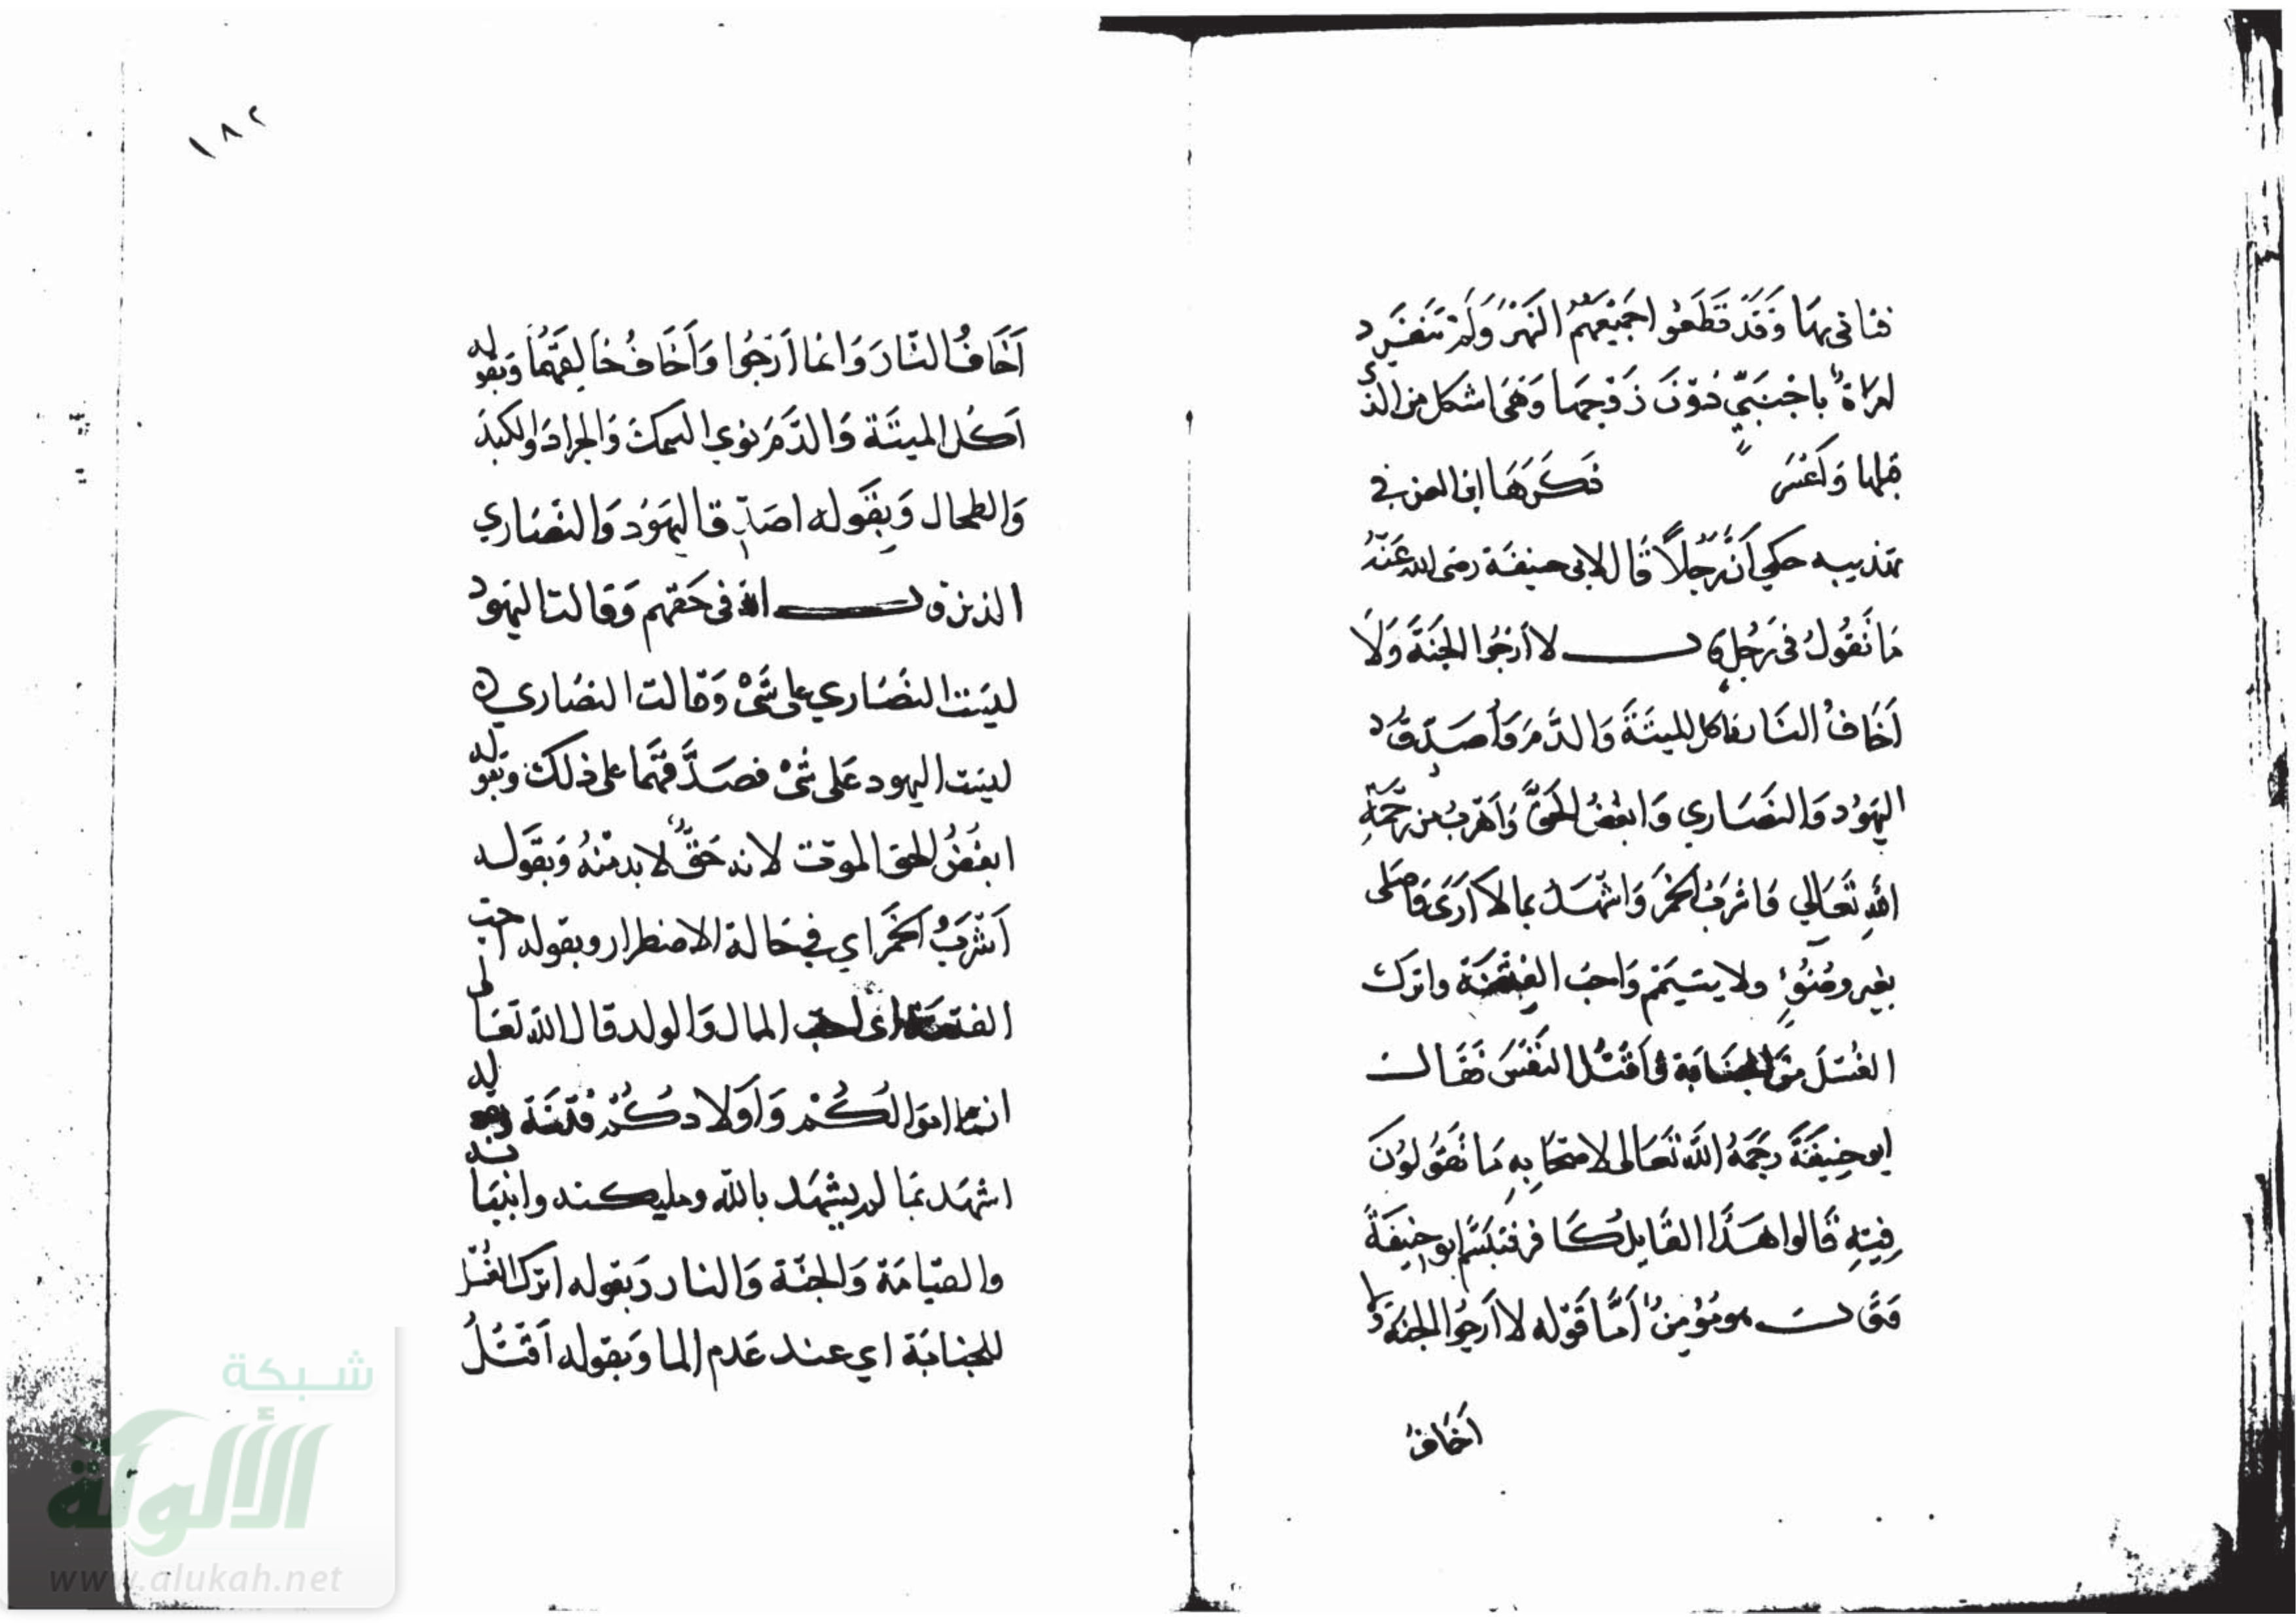 فتاتي بها وَقَدْ قَطَعُو اجَمِيْعَهُمُ النَهَرْ وَلَمْ تنفَرِد
امراة باجْنَبيّ دُوْنَ زَوْجهَا وَهَىَ اشكل من الذي
قبلها وَ ذكَرَهَا ابن العز في
تهذيبه حكي اَنَّ رَجُلاً قَال لابى حنيفَة رضى الله عَنْهُ
مَا تَقُولُ فى رَجُل قال لا اَرْجُوا الجَنَةَ وَلَا
اَخَافُ النَار وَاكل الميتَةَ وَالدَّمَ وَاُصَدِّقُ
اليَهوُد وَالنَصَاري وَابغضُ الحَقَّ وَاَهْرَبُ من رَحْمَةِ
اللهِ تَعَالي وَاشْرَبُ الخمْرَ وَاشْهَدُ بما لا اَرَى وَاصَلى
بغير وضُوءٍ ولا يتيَمّم وَاحبُ الفِتْنَة واترك
الغُسْلَ مِنَ الجنَابَة وَاَقْتُل النَفْسَ فَقَالَ
ابو حنِيفَةَ رَحِمَهُ اللَّه تَعَالى لاصْحَابِهِ مَا تَقُولوُنَ
فِيهِ قَالوا هَذَا القَايِل كَافر فتبَسَّم ابو حنِيفَةَ
وَقَالَ هو مُؤْمِنٌ اَمَّا قَوْله لا اَرجُوا الجنَةَ وَلَا
اَخَافُ
١٨٢
اَخَافُ النَّارَ وَانما اَرْجُوا وَاَخَافُ خَالِقَهُمَا وَبقوله
اَكُل الميتَة وَالدَّمَ نوي السمك وَالجراد وَالكبدَ
وَالطحال وَبِقَوله اصَدِّق اليهَوُد وَالنصَاري
الذين قال اللّه فى حَقهِم وَقَالتِ اليَهوُد
ليسَت النصَاري على شَىْ وَقَالت النصَاري
ليسَت اليهود عَلى شَىْ فصَدَّقتُهمَا على ذلك وبقوله
ابغضُ الحق الموت لانه حَقٌّ لا بد مِنْهُ وَبقَوله
اَشْرَبُ الخمَر اي في حَالة الاضطرار وبقوله احب
الفتنة اى احب المال وَالولد قال اللّه تعَالى
انما اموَالكُمْ وَاَوْلادكُمْ فتنَة وبقوله
اشهَد بمَا لم يشهَد باللّه وملايكته وانبيَايه
والقيَامَة وَالجنَّة وَالنار وَبقوله اترك الغُسْل
للجنابَة اي عند عَدم الما وَبقوله اَقتُلُ
شبكة
الألوكة
www.alukah.net